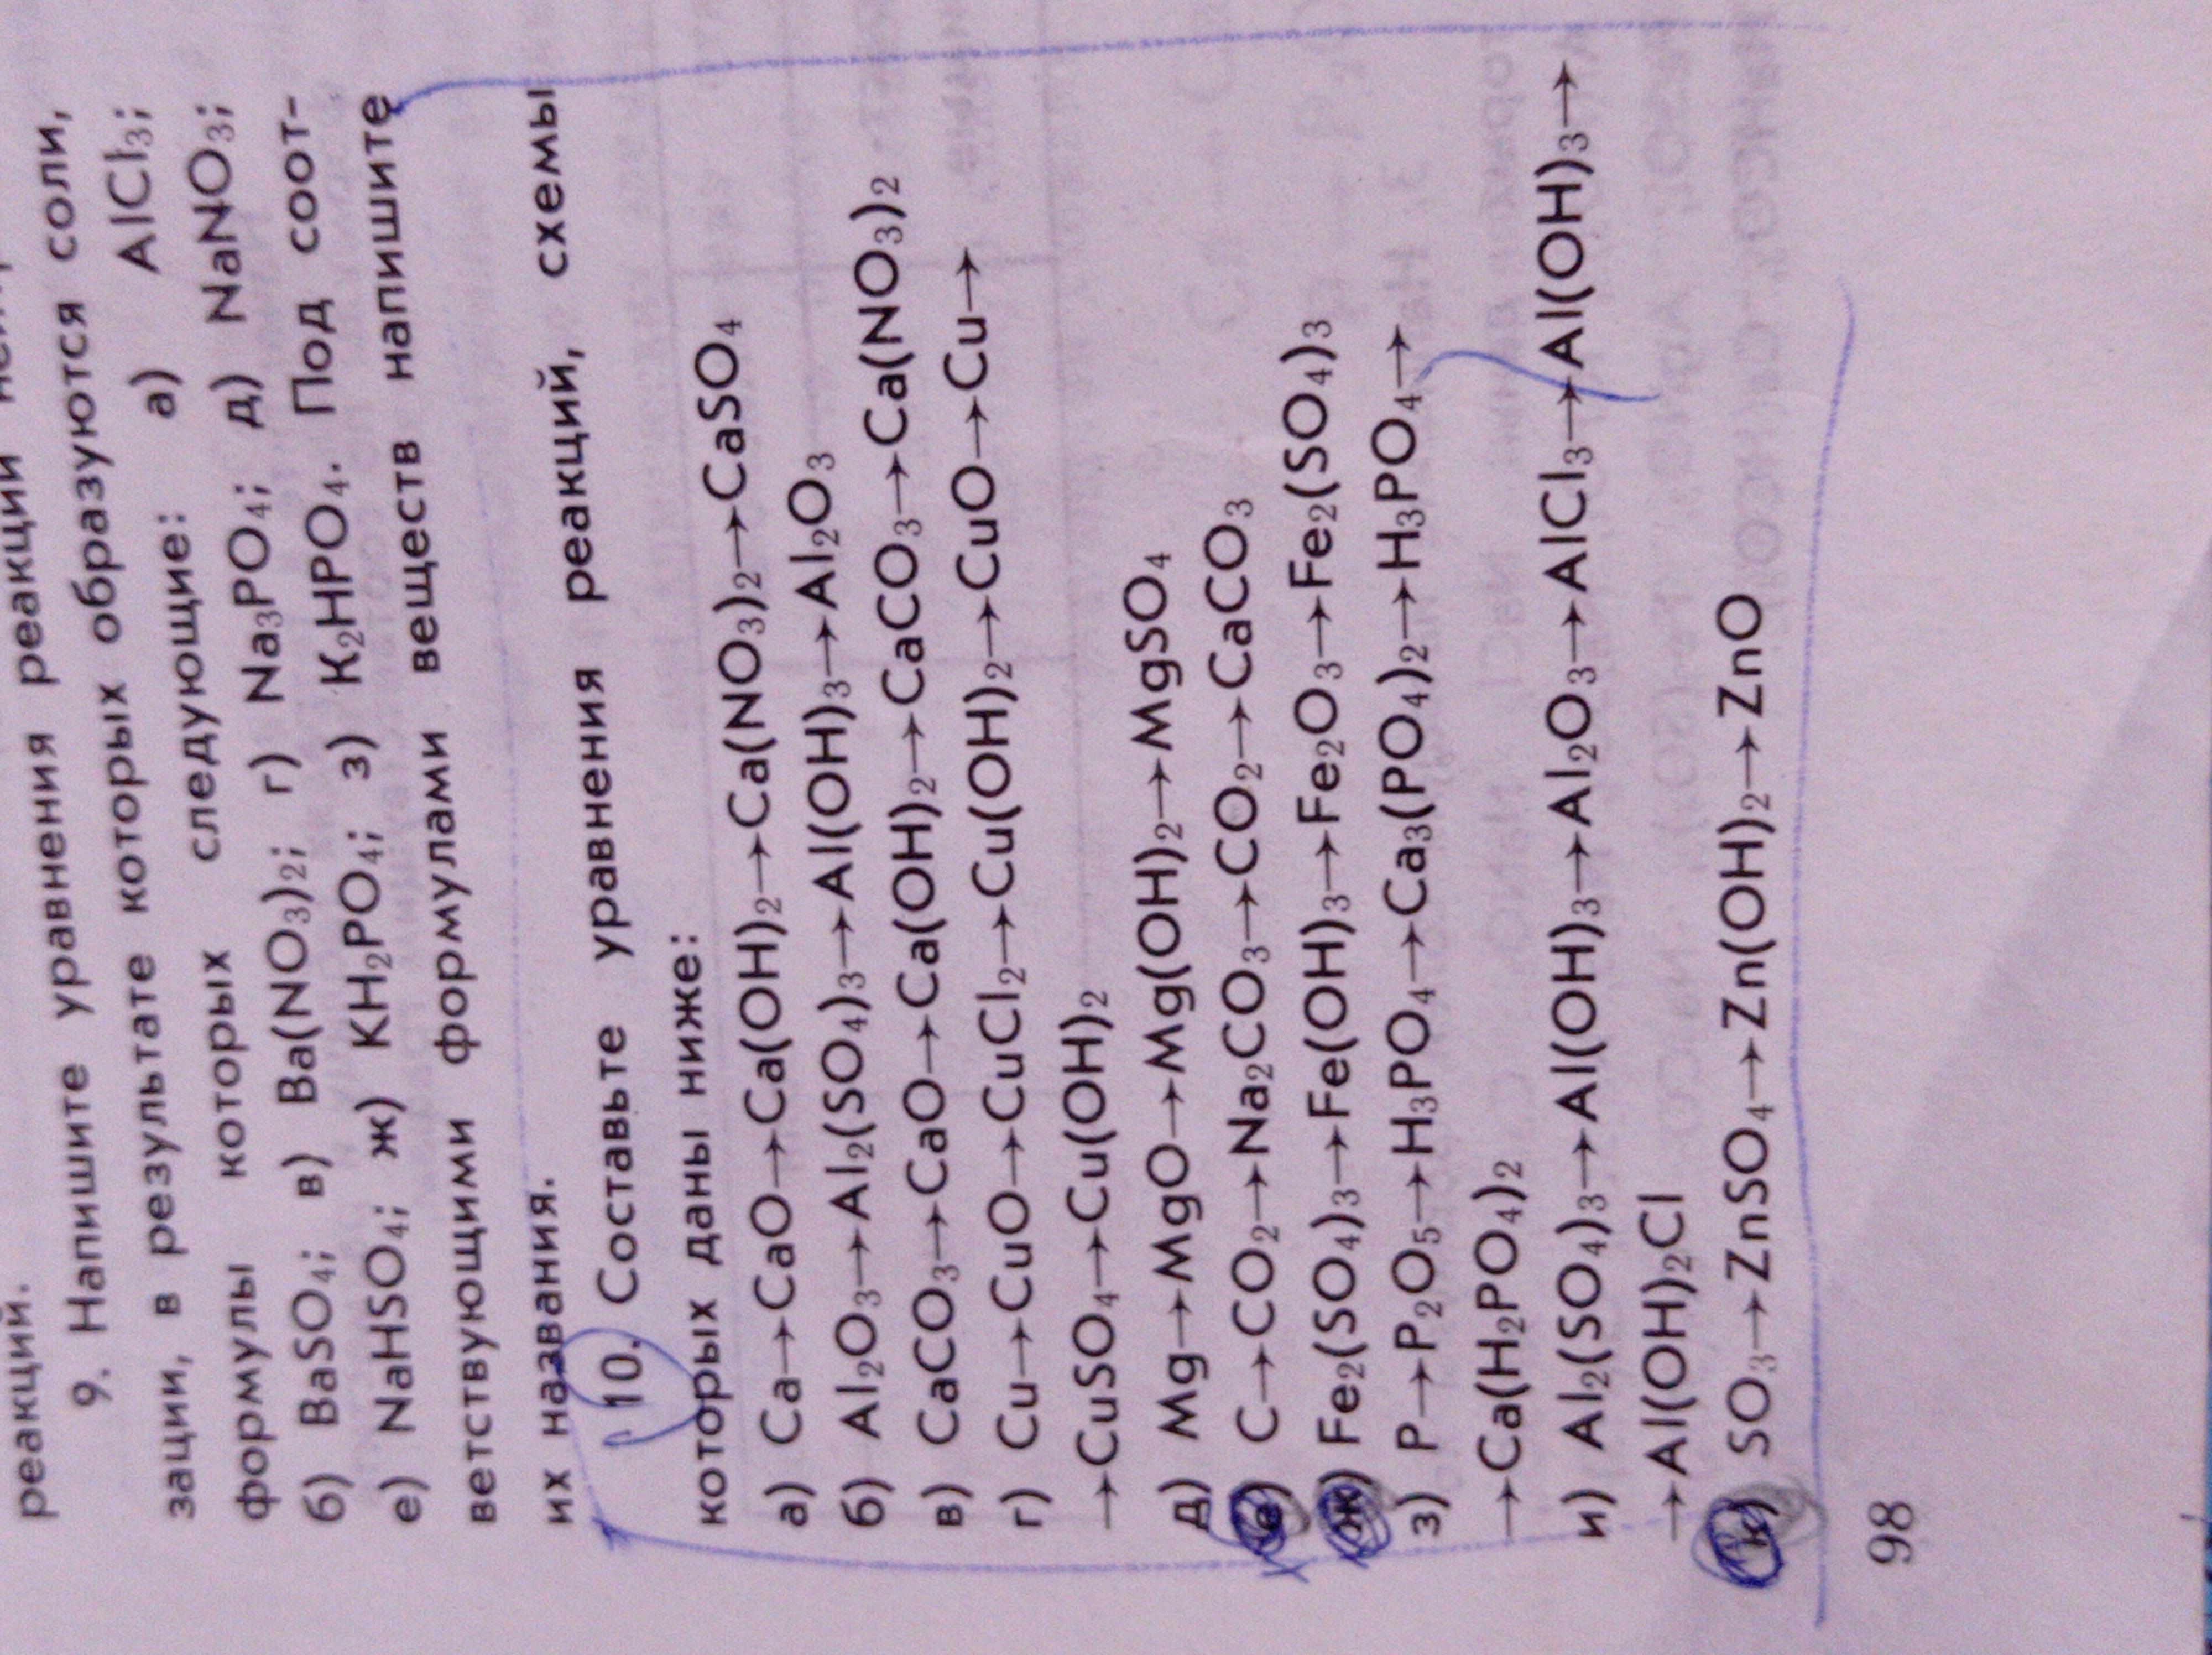 реакций.
9. Напишите уравнения реакций
зации, в результате которых образуются соли,
формулы которых следующие: а) AlCl₃;
б) BaSO₄; в) Ba(NO₃)₂; г) Na₃PO₄; д) NaNO₃;
е) NaHSO₄; ж) KH₂PO₄; з) K₂HPO₄. Под соот-
ветствующими формулами веществ напишите
их названия.
10. Составьте уравнения реакций, схемы
которых даны ниже:
а) Ca→CaO→Ca(OH)₂→Ca(NO₃)₂→CaSO₄
б) Al₂O₃→Al₂(SO₄)₃→Al(OH)₃→Al₂O₃
в) CaCO₃→CaO→Ca(OH)₂→CaCO₃→Ca(NO₃)₂
г) Cu→CuO→CuCl₂→Cu(OH)₂→CuO→Cu→
→CuSO₄→Cu(OH)₂
д) Mg→MgO→Mg(OH)₂→MgSO₄
е) C→CO₂→Na₂CO₃→CO₂→CaCO₃
ж) Fe₂(SO₄)₃→Fe(OH)₃→Fe₂O₃→Fe₂(SO₄)₃
з) P→P₂O₅→H₃PO₄→Ca₃(PO₄)₂→H₃PO₄→
→Ca(H₂PO₄)₂
и) Al₂(SO₄)₃→Al(OH)₃→Al₂O₃→AlCl₃→Al(OH)₃→
→Al(OH)₂Cl
к) SO₃→ZnSO₄→Zn(OH)₂→ZnO
98